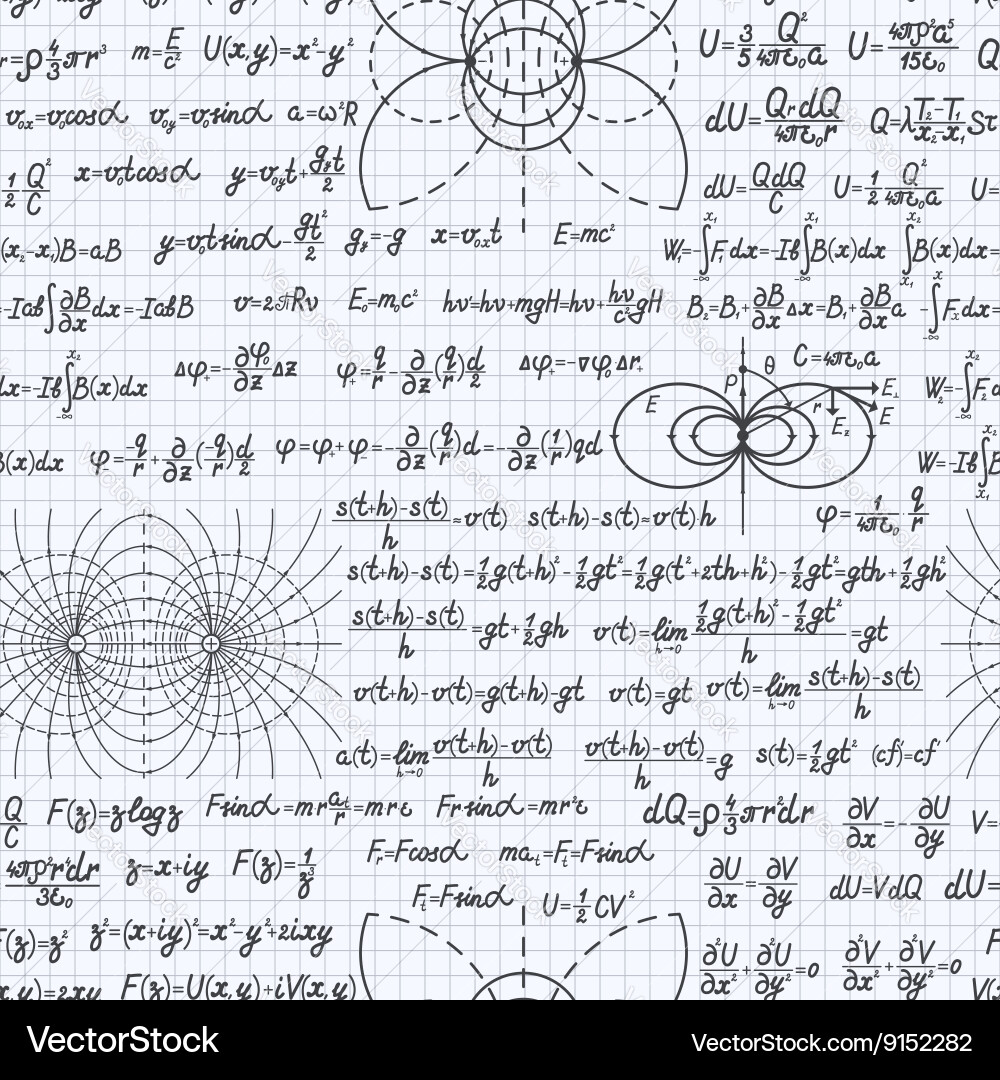 U=3/5 Q²/4πε₀a U=4πρ²a⁵/15ε₀ Q
r=ρ4/3πr³ m=E/c² U(x,y)=x²-y²
v₀ₓ=v₀cosα v₀y=v₀sinα a=ω²R dU=QrdQ/4πε₀r Q=λT₂-T₁/x₂-x₁Sτ
1/2 Q²/C x=v₀tcosα y=v₀yt+gyt²/2 dU=QdQ/C U=1/2 Q²/4πε₀a U=
(x₂-x₁)B=aB y=v₀tsinα-gt²/2 gy=-g x=v₀ₓt E=mc² W₁=-∫F₁dx=-Ib∫B(x)dx ∫B(x)dx=
-Iab∫∂B/∂x dx=-IabB v=2πRν E₀=m₀c² hν'=hν+mgH=hν+hν/c²gH B₂=B₁+∂B/∂xΔx=B₁+∂B/∂xa -∫Fₓdx=
dx=-Ib∫B(x)dx Δφ₊=-∂φ₀/∂zΔz φ₊=q/r-∂/∂z(q/r)d/2 Δφ₊=-∇φ₀Δr₊ C=4πε₀a
P θ E r E⊥ E E_z W₂=-∫F₂d
B(x)dx φ₋=-q/r+∂/∂z(-q/r)d/2 φ=φ₊+φ₋=-∂/∂z(q/r)d=-∂/∂z(1/r)qd W=-Ib∫B
s(t+h)-s(t)/h≈v(t) s(t+h)-s(t)≈v(t)·h φ=1/4πε₀·q/r
s(t+h)-s(t)=1/2g(t+h)²-1/2gt²=1/2g(t²+2th+h²)-1/2gt²=gth+1/2gh²
s(t+h)-s(t)/h=gt+1/2gh v(t)=lim h→0 1/2g(t+h)²-1/2gt²/h=gt
v(t+h)-v(t)=g(t+h)-gt v(t)=gt v(t)=lim h→0 s(t+h)-s(t)/h
a(t)=lim h→0 v(t+h)-v(t)/h v(t+h)-v(t)/h=g s(t)=1/2gt² (cf)'=cf'
Q/C F(z)=zlogz Fsinα=mraₜ/r=mrε Frsinα=mr²ε dQ=ρ4/3πr²dr ∂V/∂x=-∂U/∂y V=
4πρ²r⁴dr/3ε₀ z=x+iy F(z)=1/z³ Fᵣ=Fcosα maₜ=Fₜ=Fsinα ∂U/∂x=∂V/∂y dU=VdQ dU=
F(z)=z² z²=(x+iy)²=x²-y²+2ixy Fₜ=Fsinα U=1/2CV²
x,y)=2xy F(z)=U(x,y)+iV(x,y) ∂²U/∂x²+∂²U/∂y²=0 ∂²V/∂x²+∂²V/∂y²=0
VectorStock® VectorStock.com/9152282